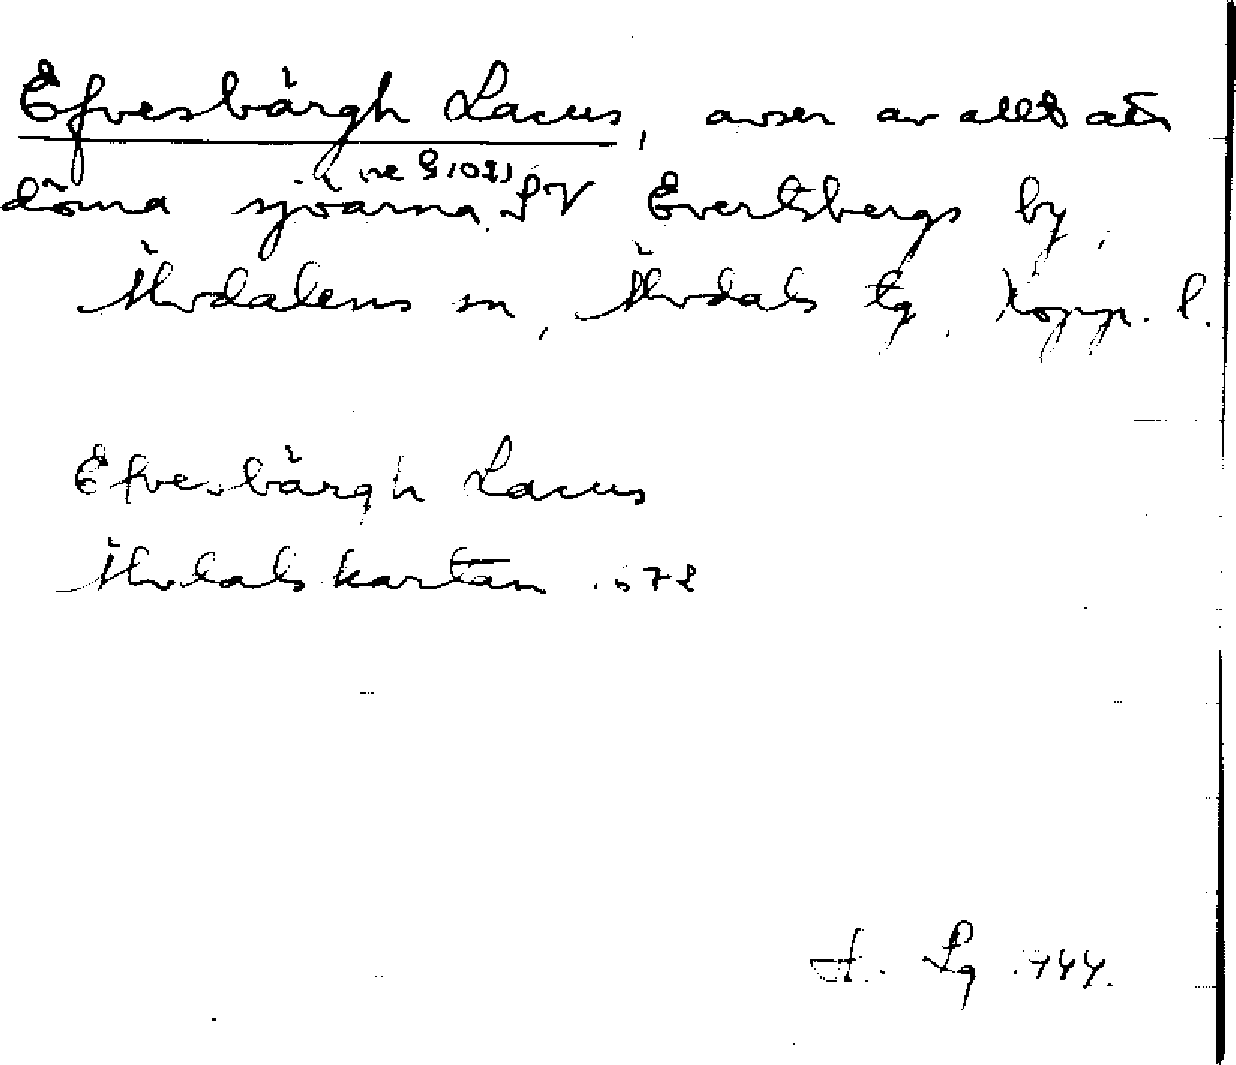 Efvesbårgh Lacus, avser av allt att
döma sjöarna SV Evertsbergs by,
Älvdalens sn, Älvdals tg, Kopp. l.
Efvesbårgh Lacus
Älvdalskartan
Lg